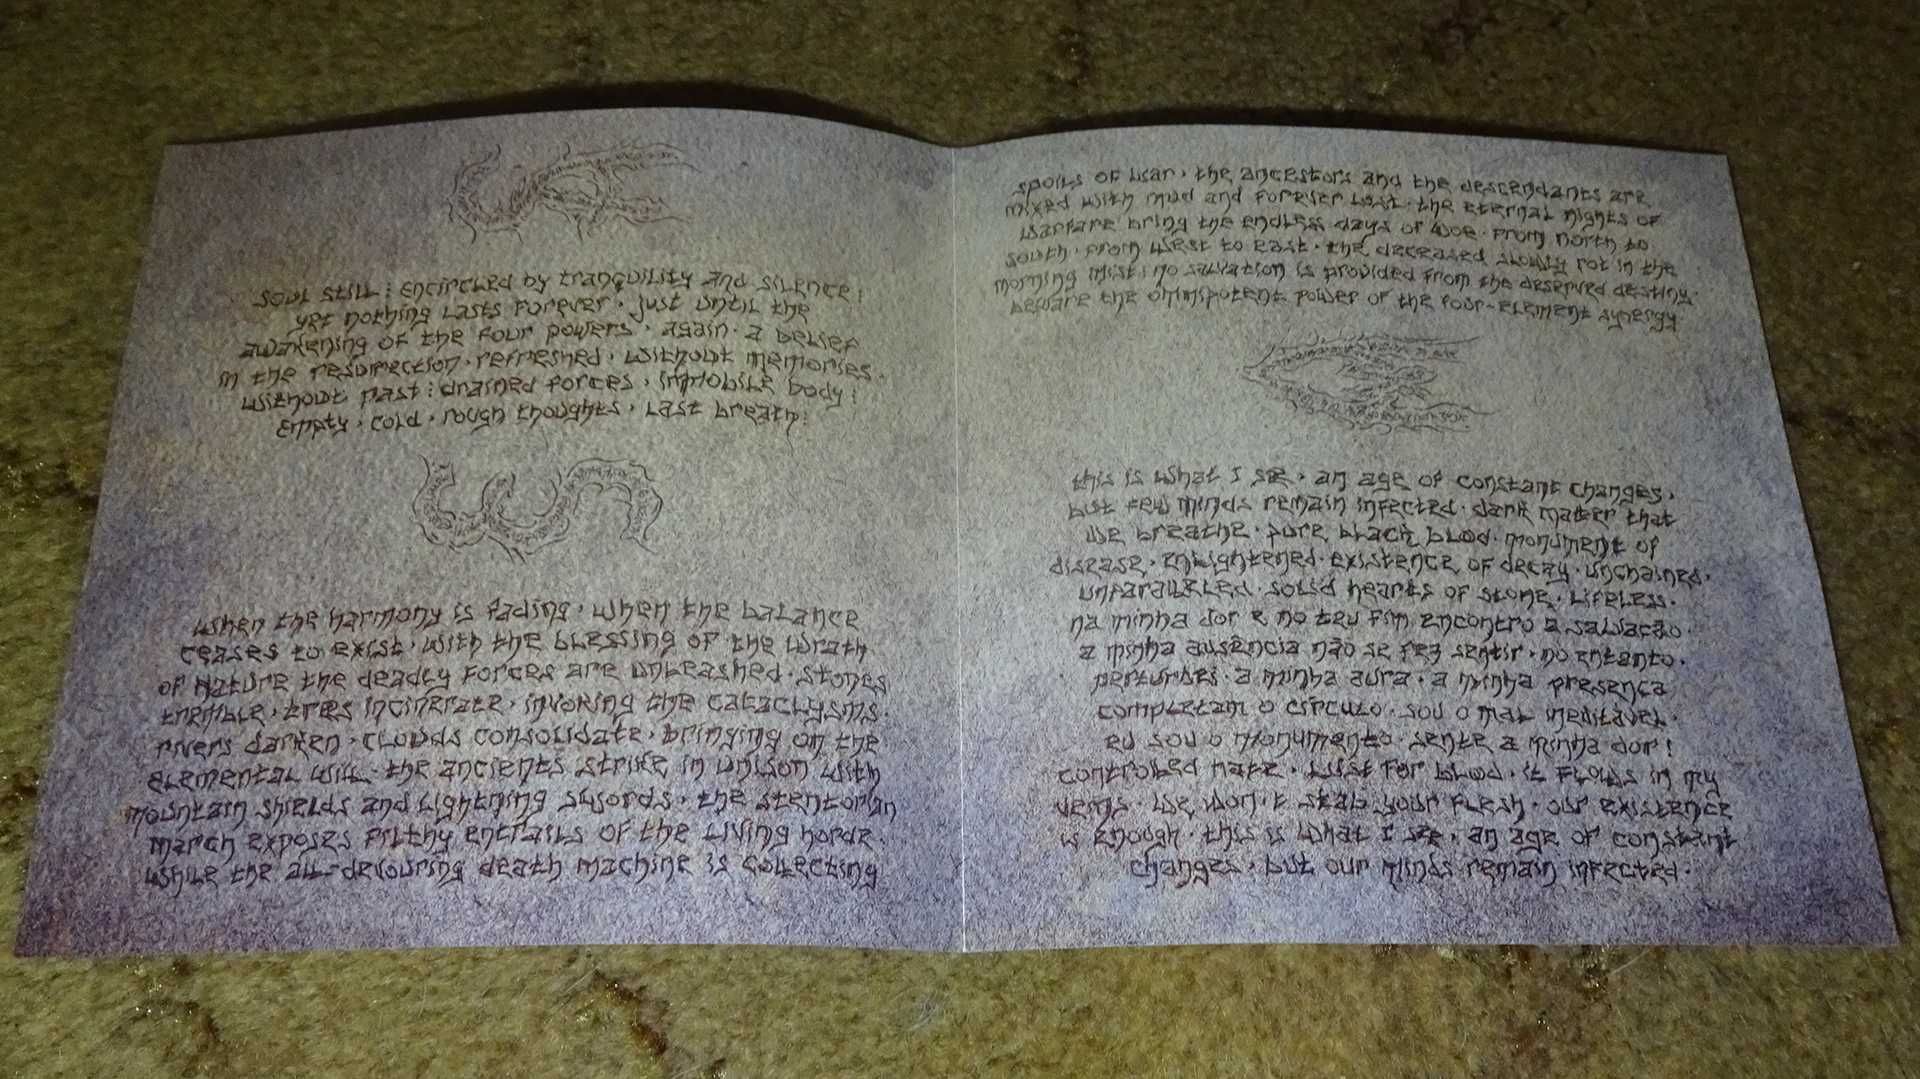 soul still : encircled by tranquility and silence :
yet nothing lasts forever · just until the
awakening of the four powers · again · a belief
in the resurrection · refreshed · without memories ·
without past : drained forces · immobile body :
empty · cold · rough thoughts · last breath :
when the harmony is fading · when the balance
ceases to exist · with the blessing of the wrath
of nature the deadly forces are unleashed · stones
tremble · trees incinerate · invoking the cataclysms ·
rivers darken · clouds consolidate · bringing on the
elemental will · the ancients strike in unison with
mountain shields and lightning swords · the stentorian
march exposes filthy entrails of the living horde ·
while the all-devouring death machine is collecting
spoils of war · the ancestors and the descendants are
mixed with mud and forever lost · the eternal nights of
warfare bring the endless days of woe · from north to
south · from west to east · the deceased slowly rot in the
morning mist : no salvation is provided from the deserved destiny ·
beware the omnipotent power of the four-element synergy
this is what I see · an age of constant changes ·
but few minds remain infected · dark matter that
we breathe · pure black blood · monument of
disease · enlightened existence of decay · unchained ·
unparalleled · solid hearts of stone · lifeless ·
na minha dor e no teu fim encontro a salvação ·
a minha ausência não se fez sentir · no entanto ·
perturbei · a minha aura · a minha presença
completam o círculo · sou o mal inevitável ·
eu sou o monumento · sente a minha dor !
controlled hate · lust for blood · it flows in my
veins · we won't stab your flesh · our existence
is enough · this is what I see · an age of constant
changes · but our minds remain infected ·